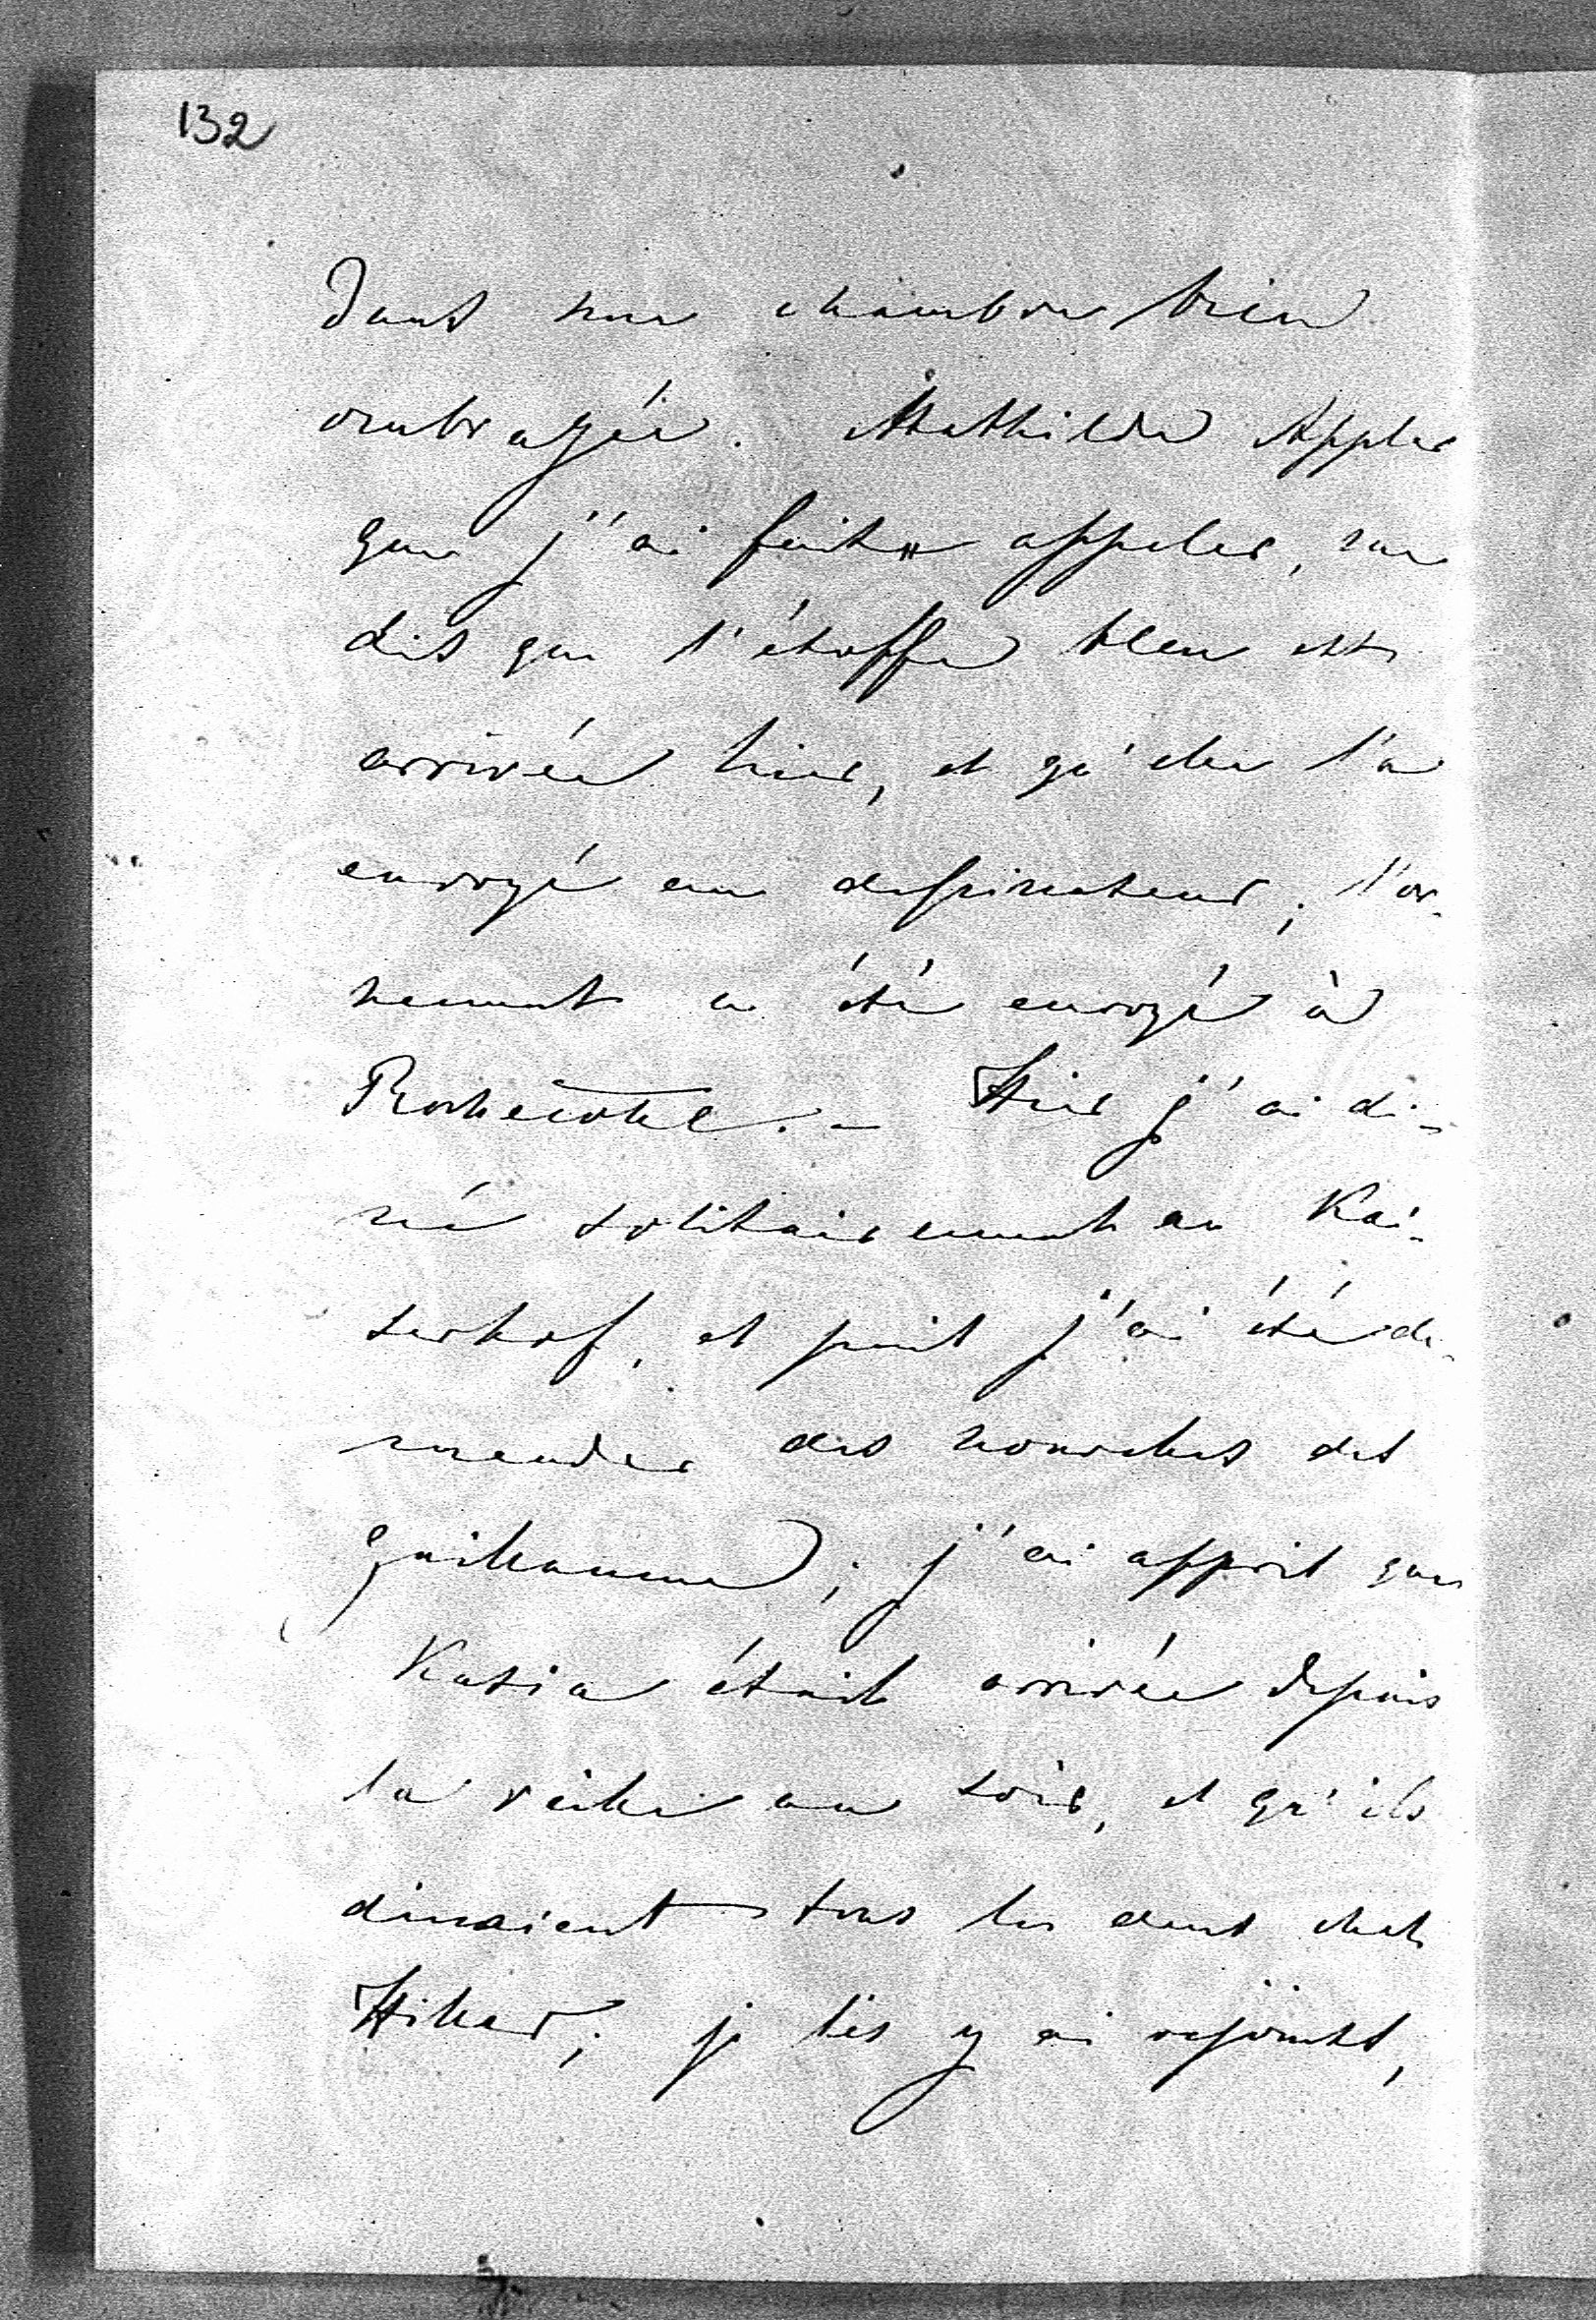 132
dans ma chambre bien
ombragée. Mathilde Appler
que j'ai faite appeler, me
dis que l'étoffe bleu est
arrivée hier, et qu'elle l'a
envoyé au dessinateur; l'or-
nement a été envoyé à
Rochecotte. - Hier j'ai di-
né solitairement au Kai-
serhof, et puis j'ai été de-
mander des nouvelles des
Guillaume; j'ai appris que
Katia était arrivée depuis
la veille au soir, et qu'ils
dinaient tous les deux chez
Hiller; je les y ai rejoints,